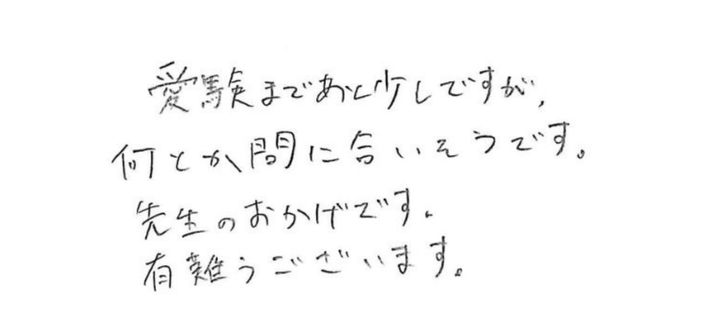 愛験まであと少しですが、
何とか問に合いそうです。
先生のおかげです。
有難うございます。